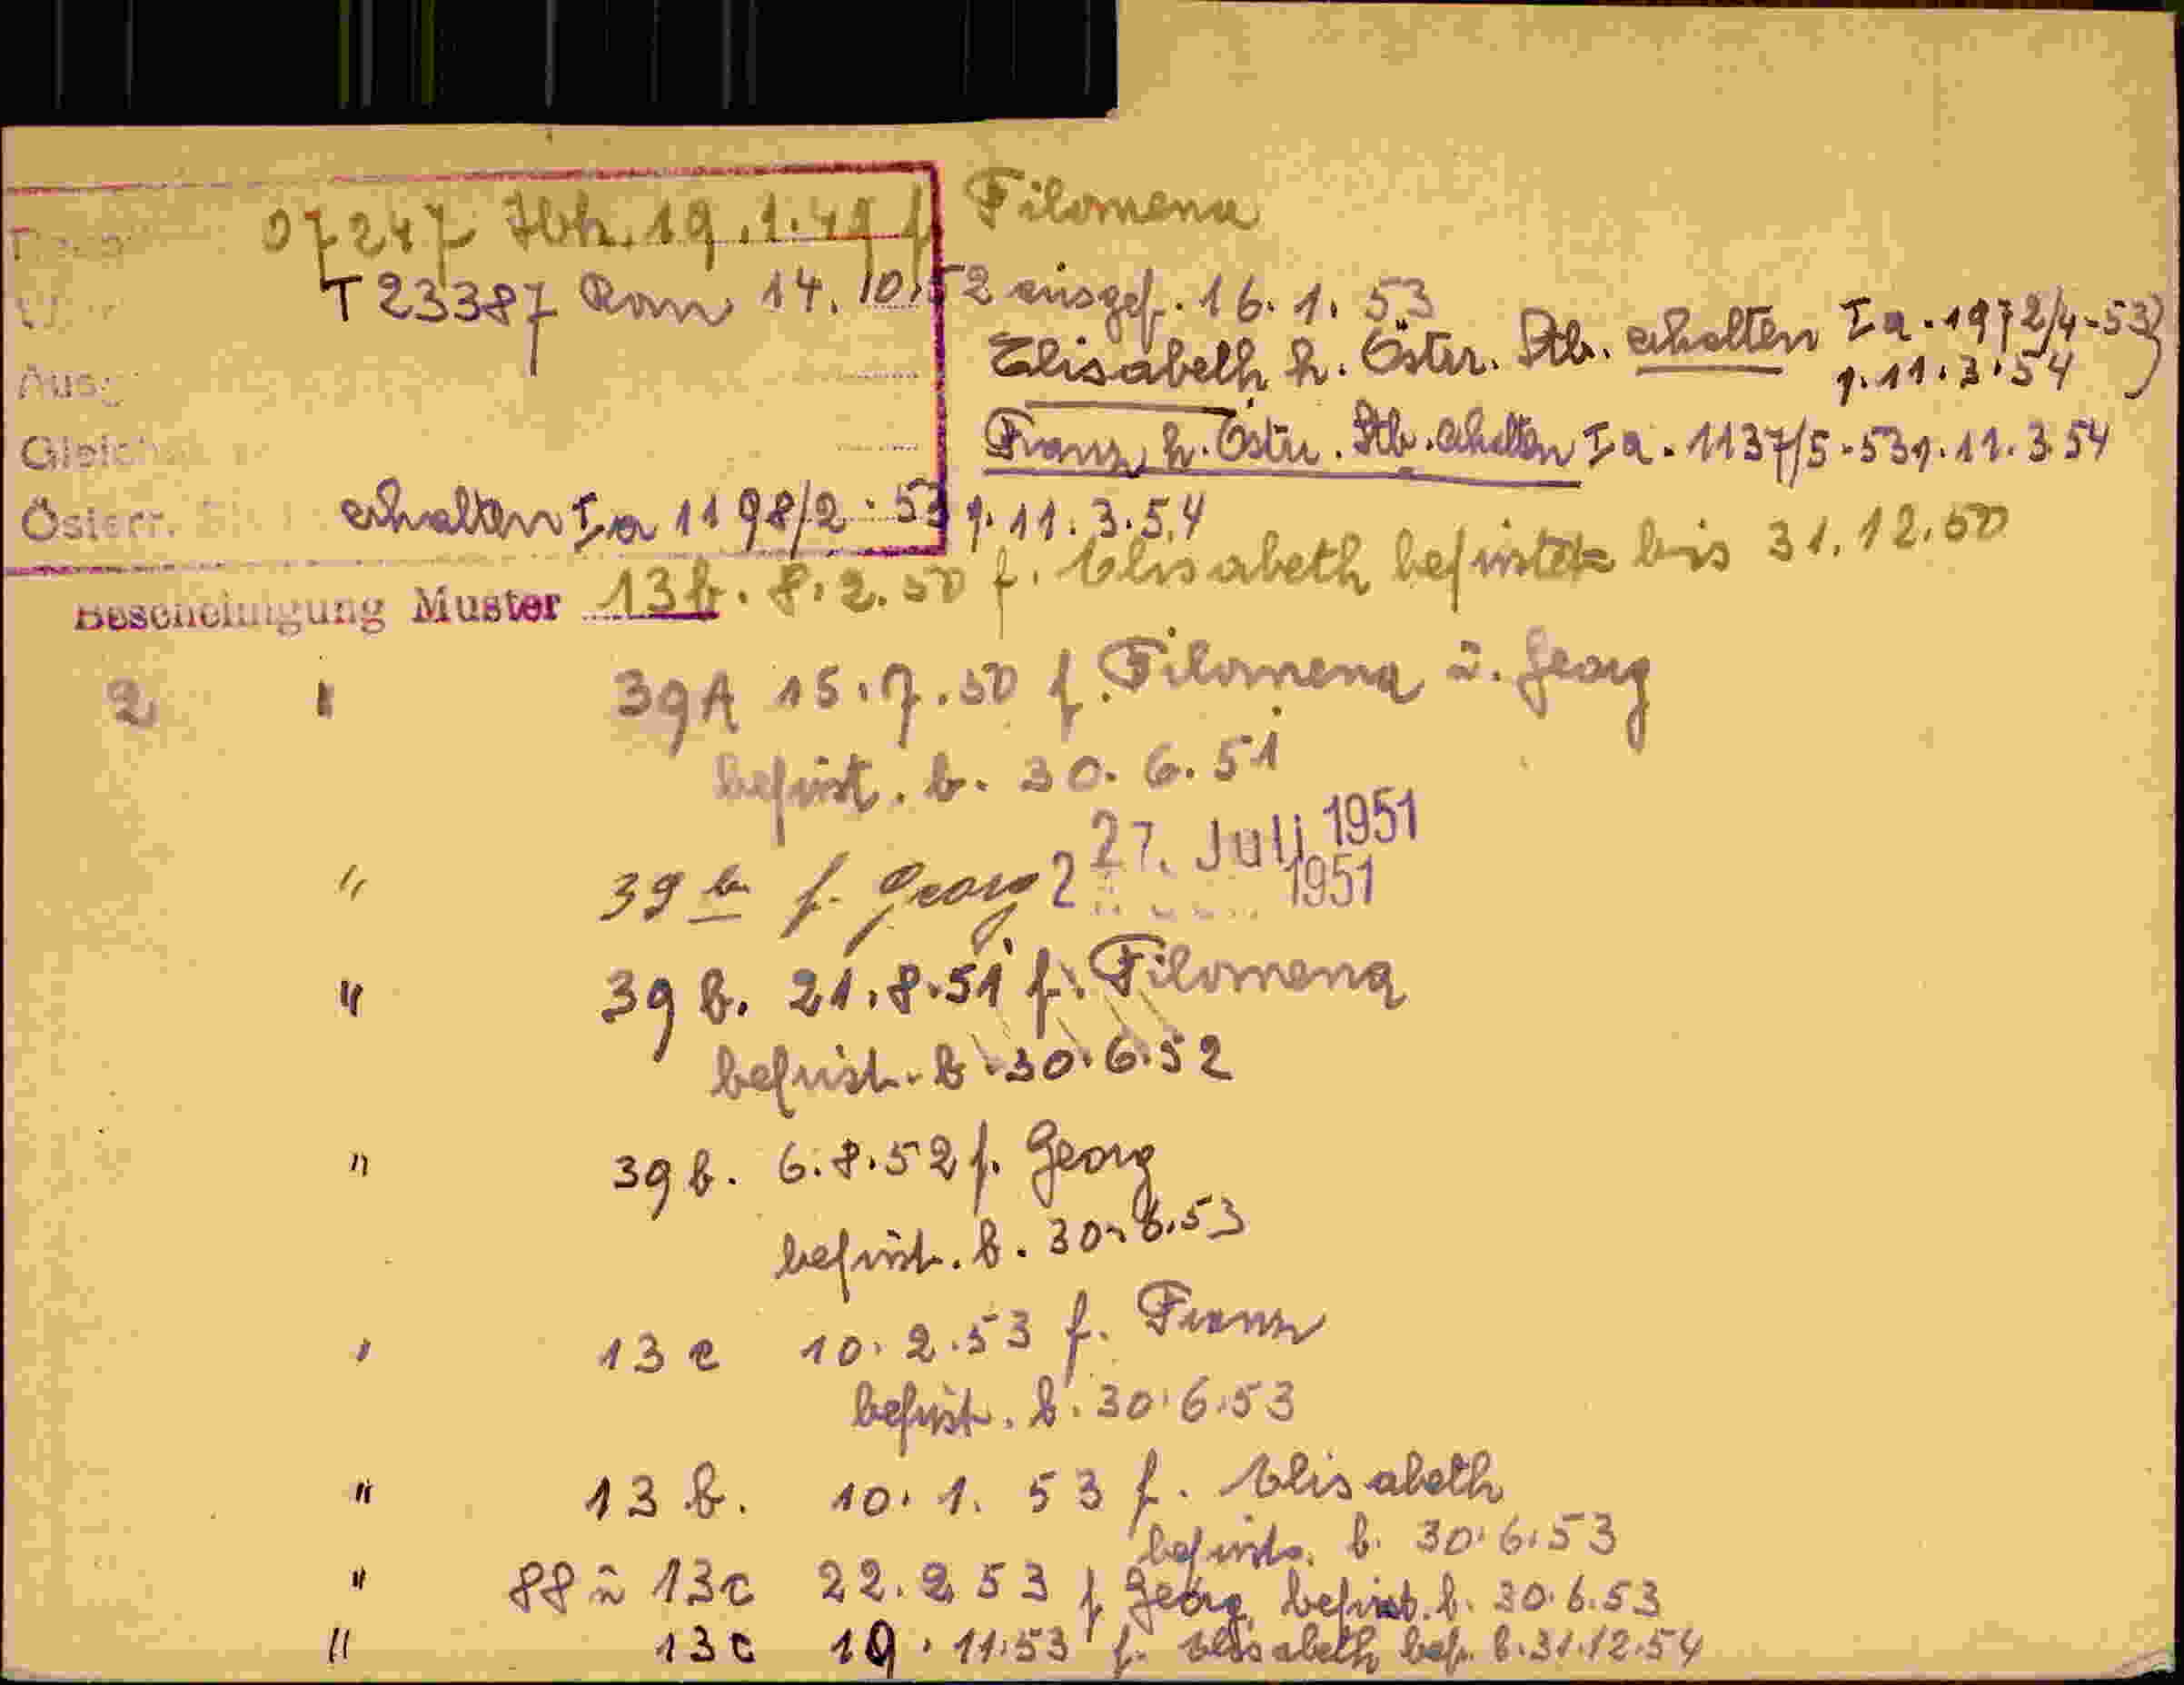 07247 Ibk. 19.1.49 f. Filomena
T 23387 Rom 14.10.52 ausgef. 16.1.53
Elisabeth h. Öster. Stb. erhalten Ia. 1972/4-53)
v. 11.3.54
Ausg
Franz h. Östr. Stb. erhalten Ia. 1137/5-53 v. 11.3.54
Gleich
Österr. erhalten Ia 1198/2-53 v. 11.3.54
Bescheinigung Muster 13b. 8.2.50 f. Elisabeth befristet bis 31.12.50
2 " 39A 15.7.50 f. Filomena u. Georg
befrist. b. 30.6.51
27. Juli 1951
" 39 b f. Georg 2 1951
" 39 b. 21.8.51 f. Filomena
befrist. b. 30.6.52
" 39 b. 6.8.52 f. Georg
befrist. b. 30.6.53
" 13 c 10.2.53 f. Franz
befrist. b. 30.6.53
" 13 b. 10.1.53 f. Elisabeth
befrist. b. 30.6.53
" 88 u 13c 22.2 53 f Georg befrist. b. 30.6.53
" 13c 19.11.53 f. Elisabeth bef. b. 31.12.54